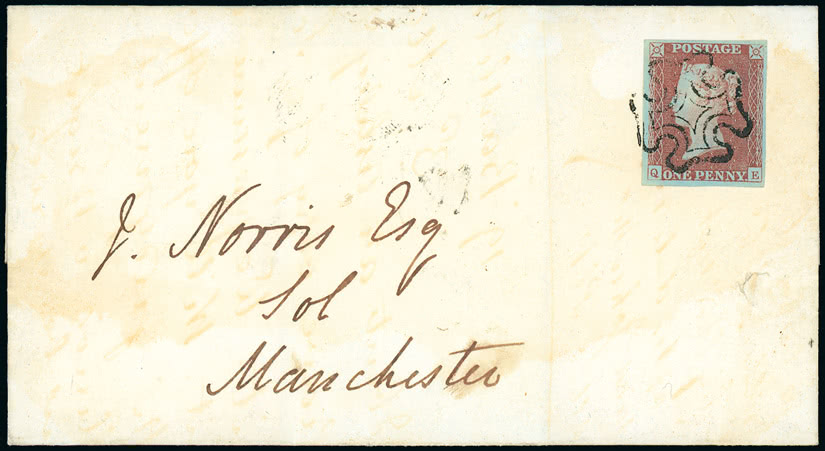 POSTAGE
Q ONE PENNY E
J. Norris Esq
Sol
Manchester